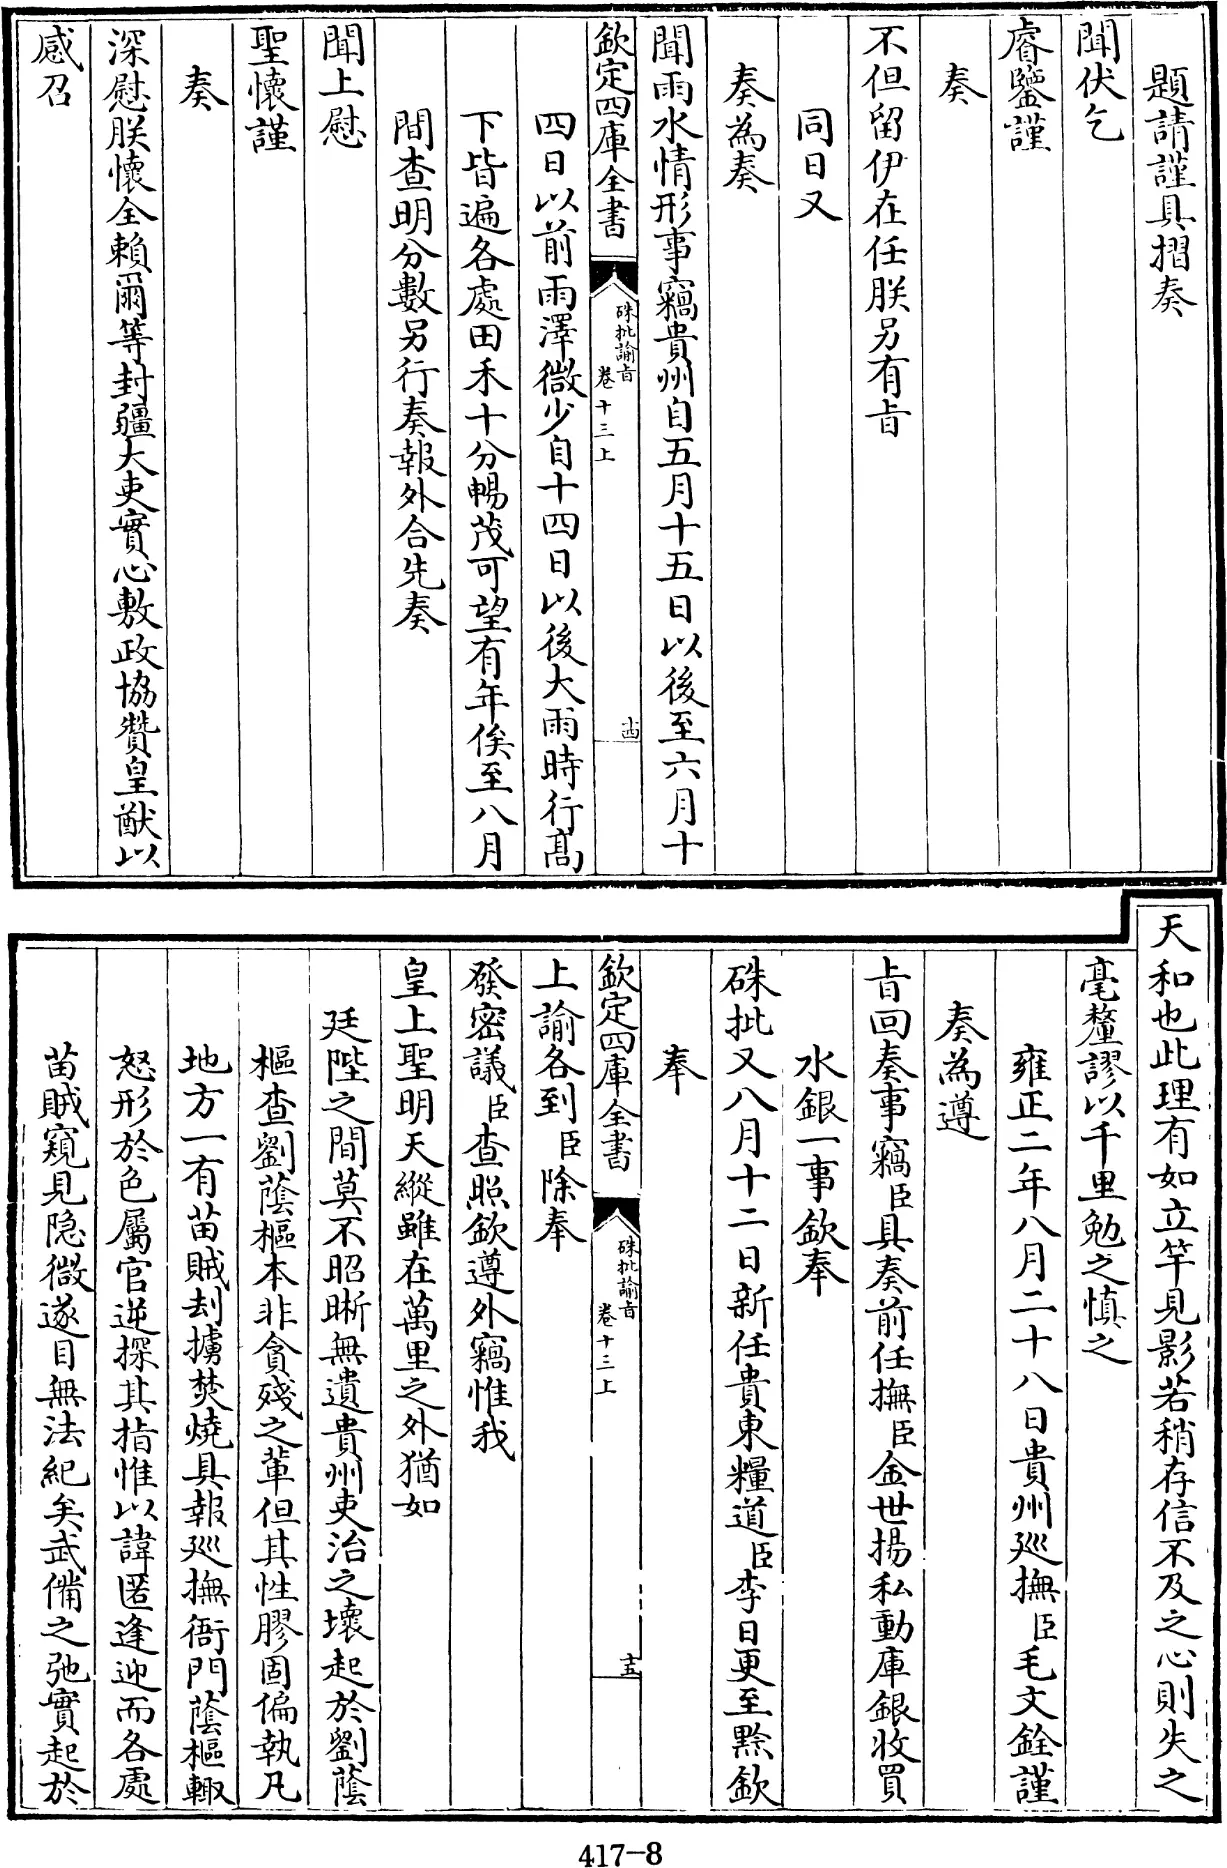 題請謹具摺奏
聞伏乞
睿鑒謹
奏
不但留伊在任朕另有旨
同日又
奏為奏
聞雨水情形事竊貴州自五月十五日以後至六月十
欽定四庫全書
硃批諭旨
卷十三上
十四
四日以前雨澤微少自十四日以後大雨時行髙
下皆遍各處田禾十分暢茂可望有年俟至八月
間查明分數另行奏報外合先奏
聞上慰
聖懷謹
奏
深慰朕懷全賴爾等封疆大吏實心敷政協贊皇猷以
感召
天和也此理有如立竿見影若稍存信不及之心則失之
毫釐謬以千里勉之慎之
雍正二年八月二十八日貴州廵撫臣毛文銓謹
奏為遵
旨回奏事竊臣具奏前任撫臣金世揚私動庫銀收買
水銀一事欽奉
硃批又八月十二日新任貴東糧道臣李日更至黔欽
奉
欽定四庫全書
硃批諭旨
卷十三上
十五
上諭各到臣除奉
發密議臣查照欽遵外竊惟我
皇上聖明天縱雖在萬里之外猶如
廷陛之間莫不昭晰無遺貴州吏治之壞起於劉蔭
樞查劉蔭樞本非貪殘之輩但其性膠固偏執凡
地方一有苗賊刦擄焚燒具報廵撫衙門蔭樞輙
怒形於色屬官逆探其指惟以諱匿逢迎而各處
苗賊窺見隐微遂目無法紀矣武備之弛實起於
417-8